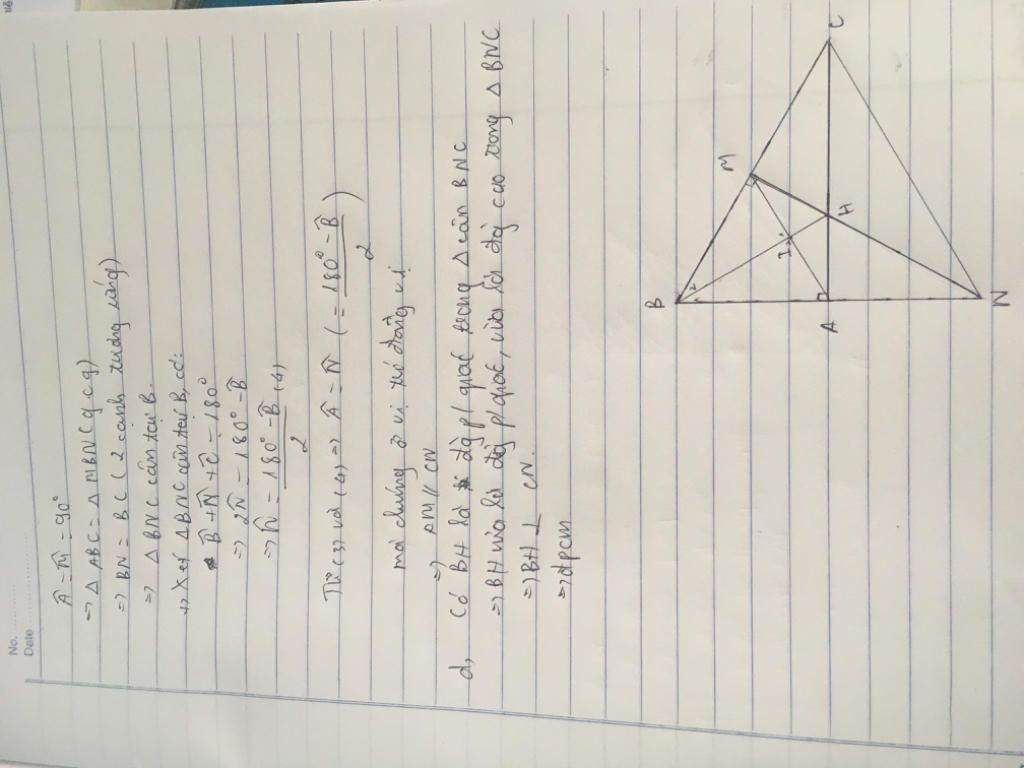 No.
Date
Â = M̂ = 90°
=> △ ABC = △ MBN (g.c.g)
=> BN = BC (2 cạnh tương ứng)
=> △ BNC cân tại B.
+, Xét △BNC cân tại B, có:
B̂ + N̂ + Ĉ = 180°
=> 2N̂ = 180° - B̂
=> N̂ = 180° - B̂ (4)
2
Từ (3) và (4) => Â = N̂ ( = 180° - B̂ )
2
mà chúng ở vị trí đồng vị
=> AM // CN
d, Có BH là đg p/ giác trong △ cân BNC
=> BH vừa là đg p/ giác, vừa là đg cao trong △ BNC
=> BH ⊥ CN.
=> đpcm
B
M
C
2
I
A
H
N